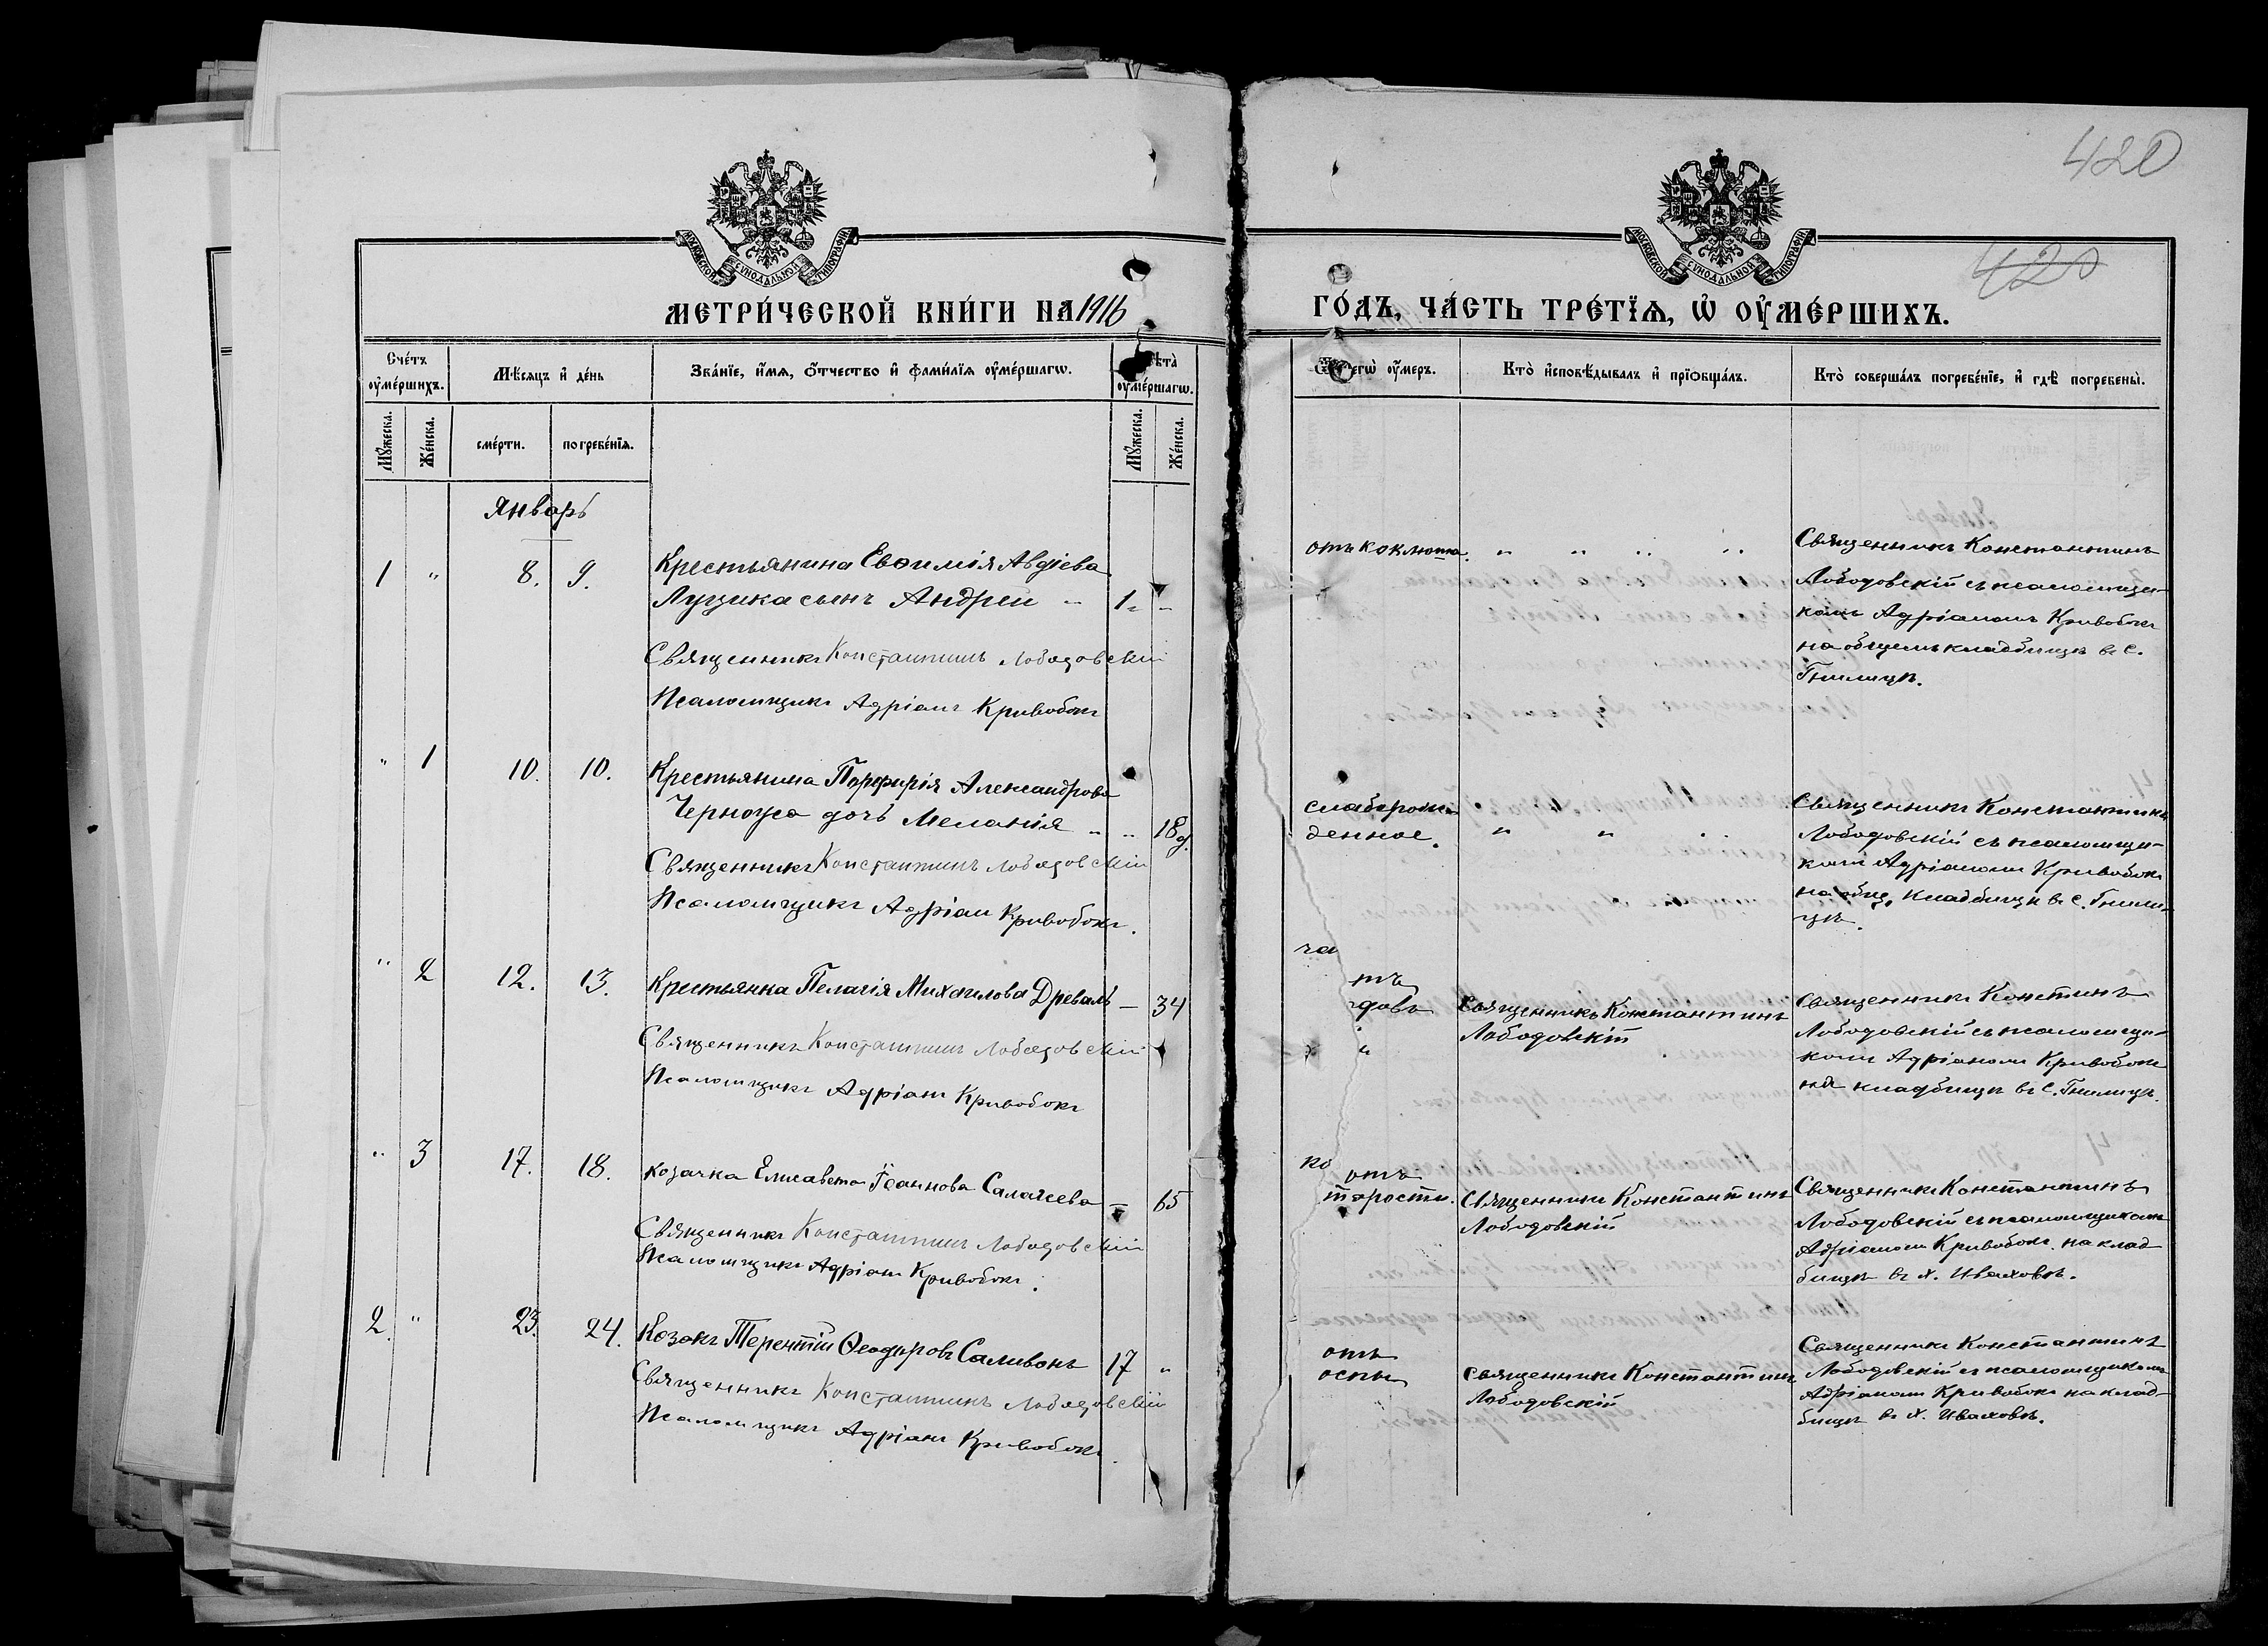 420
420
МОСКОВСКОЙ СѴНОДАЛЬНОЙ ТИПОГРАФІИ
МОСКОВСКОЙ СѴНОДАЛЬНОЙ ТИПОГРАФІИ
МЕТРИ́ЧЕСКОЙ КНИ́ГИ НА 1916
ГО́ДЪ, ЧА́СТЬ ТРЕ́ТЇѦ, Ѡ҆ ОУ҆МЕ́РШИХЪ.
Сче́тъ оу҆ме́ршихъ.
Мѣ́сяцъ и҆ де́нь
Зва́нїе, и҆́мѧ, ѻ҆́тчество и҆ фами́лїѧ оу҆ме́ршагѡ.
Лѣта̀ оу҆ме́ршагѡ.
Мꙋ́жеска.
Же́нска.
сме́рти.
погребе́нїѧ.
Мꙋ́жеска.
Же́нска.
Ѿ чегѡ̀ оу҆́меръ.
Кто̀ и҆сповѣ́дывалъ и҆ прїѻбща́лъ.
Кто̀ соверша́лъ погребе́нїе, и҆ гдѣ̀ погребены̀.
Январь
1 " 8. 9. Крестьянина Евѳимія Авдіева
Луцика сынъ Андрей " 1. "
Священникъ Константинъ Лободовскій
Псаломщикъ Адріанъ Кривобокъ
отъ коклюша. " " " "
Священникъ Константинъ
Лободовскій съ псаломщи-
комъ Адріаномъ Кривобокъ
на общемъ кладбищѣ въ с.
Гнилицѣ.
" 1 10. 10. Крестьянина Порфирія Александрова
Черноуса дочь Меланія " " 18 д.
Священникъ Константинъ Лободовскій
Псаломщикъ Адріан Кривобокъ.
слаборож-
денное. " " "
Священникъ Константинъ
Лободовскій съ псаломщи-
комъ Адріаномъ Кривобокъ
на общ. кладбищѣ въ с. Гнили-
цѣ.
" 2 12. 13. Крестьянка Пелагія Михаилова Древаль — 34
Священникъ Константинъ Лободовскій
Псаломщикъ Адріанъ Кривобокъ
ча
тъ
довъ
Священникъ Константинъ
Лободовскій
Священникъ Констинъ
Лободовскій съ псаломщи-
комъ Адріаномъ Кривобокъ
на кладбищѣ въ с. Гнилицѣ.
" 3 17. 18. козачка Елисавета Іоаннова Салагева — 65
Священникъ Константинъ Лободовскій
Псаломщикъ Адріанъ Кривобокъ.
отъ
тарости.
Священникъ Константинъ
Лободовскій
Священникъ Константинъ
Лободовскій съ псаломщикомъ
Адріаномъ Кривобокъ. на клад
бищѣ въ х. Иваховѣ.
2. " 23. 24. Козакъ Терентій Ѳеодоровъ Саливонъ 17 "
Священникъ Константинъ Лободовскій
Псаломщикъ Адріанъ Кривобокъ.
отъ
оспы
Священникъ Константинъ
Лободовскій
Священникъ Константинъ
Лободовскій съ псаломщикомъ
Адріаномъ Кривобокъ на клад-
бищѣ въ х. Иваховѣ.